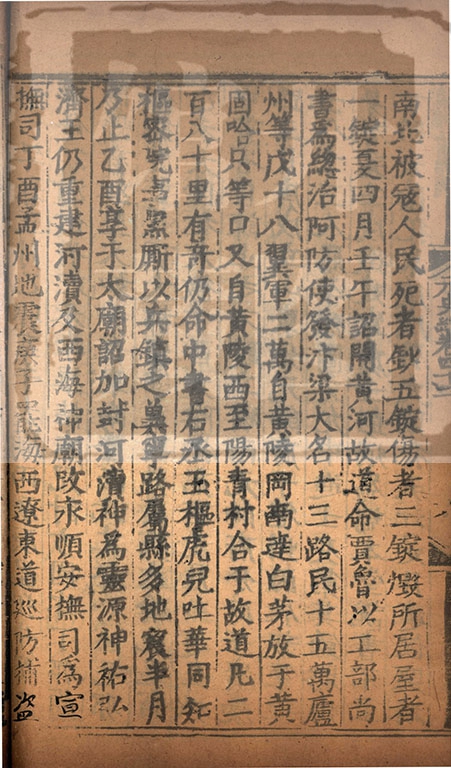 南北被寇人民死者鈔五錠傷者三錠燬所居屋者
一錠夏四月壬午詔開黃河故道命賈魯以工部尚
書爲總治河防使發汴梁大名十三路民十五萬廬
州等戍十八翼軍二萬自黃陵岡南達白茅放于黃
固哈只等口又自黃陵西至陽青村合于故道凡二
百八十里有奇仍命中書右丞玉樞虎兒吐華同知
樞密院事黑厮以兵鎮之冀寧路屬縣多地震半月
乃止乙酉享于太廟詔加封河瀆神爲靈源神祐弘
濟王仍重建河瀆及西海神廟改永順安撫司爲宣
撫司丁酉孟州地震庚子罷海西遼東道巡防捕盜